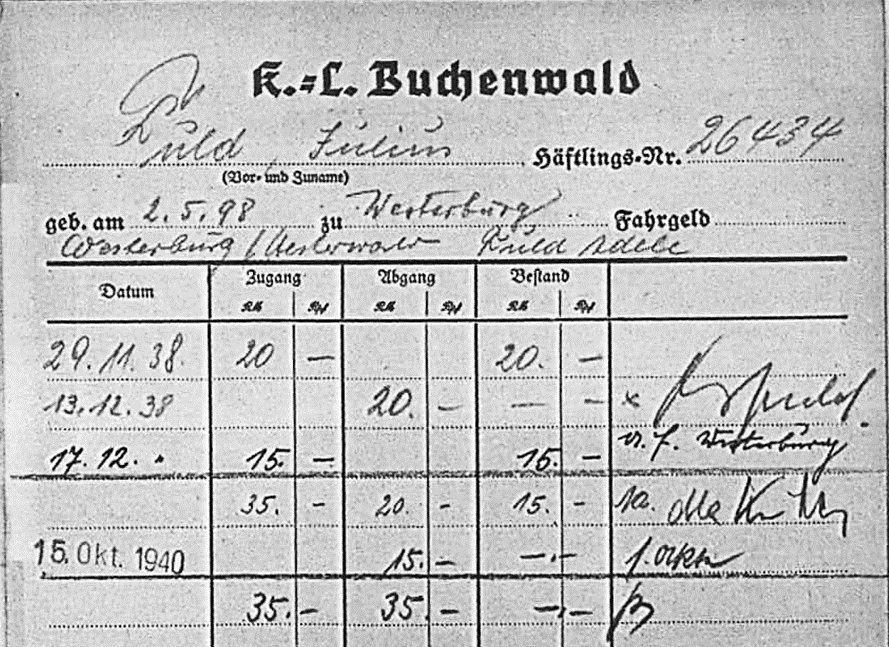 K.=L. Buchenwald
Fuld, Julius Häftlings-Nr. 26434
(Vor- und Zuname)
geb. am 2.5.98 zu Westerburg Fahrgeld
Westerburg / Westerwald Fuld Adele
Datum Zugang Abgang Bestand
RM Rpf RM Rpf RM Rpf
29.11.38. 20 — 20. —
13.12.38 20. — — — x
17.12. " 15. — 15. — v. F. Westerburg
35. - 20. - 15. -
15. Okt. 1940 15. — —.—
35. — 35. — —.—